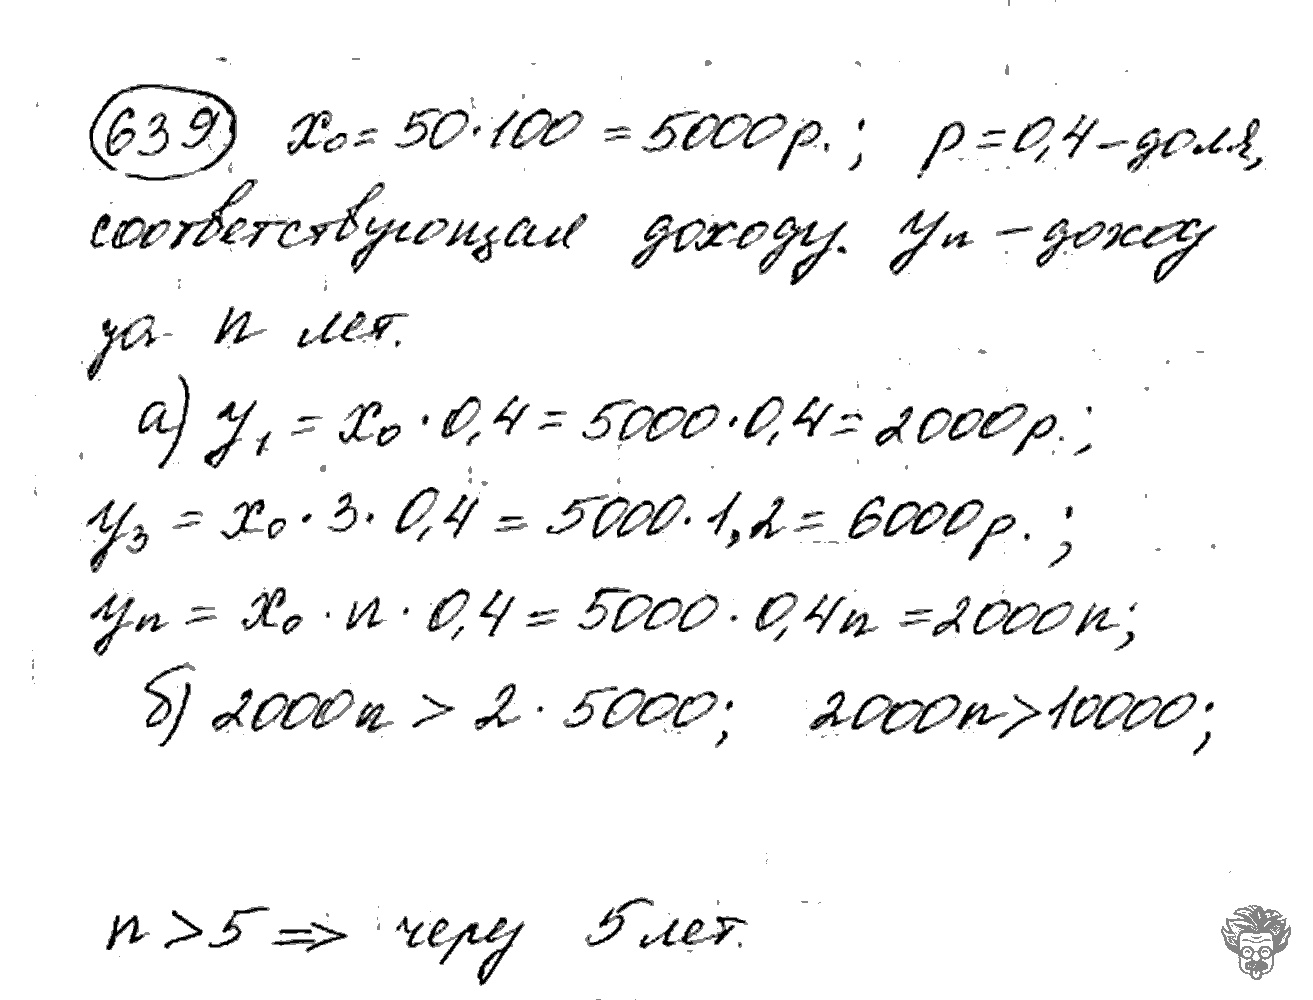 639 x₀ = 50·100 = 5000р.; p = 0,4 – доля,
соответствующая доходу. yₙ – доход
за n лет.
а) y₁ = x₀ · 0,4 = 5000·0,4 = 2000р.;
y₃ = x₀ · 3 · 0,4 = 5000·1,2 = 6000р.;
yₙ = x₀ · n · 0,4 = 5000 · 0,4n = 2000n;
б) 2000n > 2 · 5000; 2000n > 10000;
n > 5 ⇒ через 5 лет.